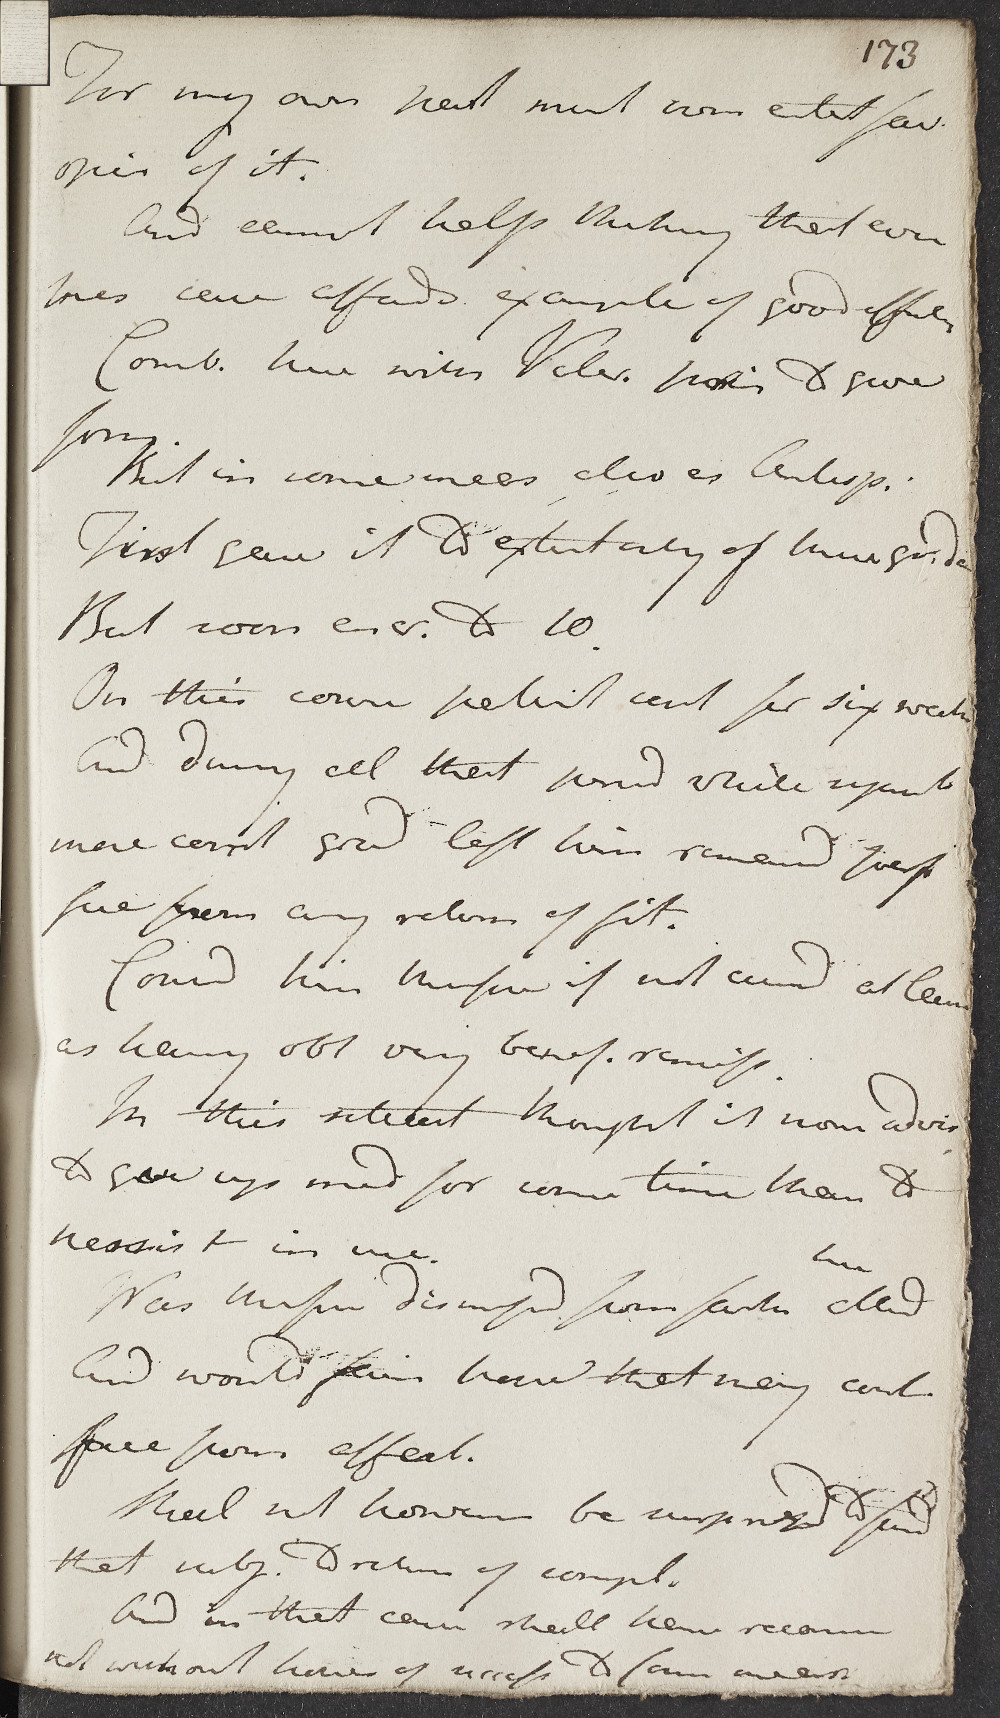 173
For my own part must own entert fav.
opin of it.
And cannot help thinking that even
pres case affords example of good effects
Comb. here with Valer. pulvis to give
form.
But in some meas also as Antisp.
First gave it to extent only of three gr.
But soon encr. to 10.
On this course patient cont for six weeks
And during all that period while sympt
more cert good left him remaind perf
free from any return of fit.
Consid him therefore if not cured at least
as having obt very benef. remiss.
In this situat thought it more advis
to give up med for some time than to
persist in use.
here
Was therefore dismissed from farther attend
And would fain hope that may cont
free from affect.
Shall not however be surprized to find
that subj. to return of compl.
And in that case shall have recourse
not without hopes of success to same means